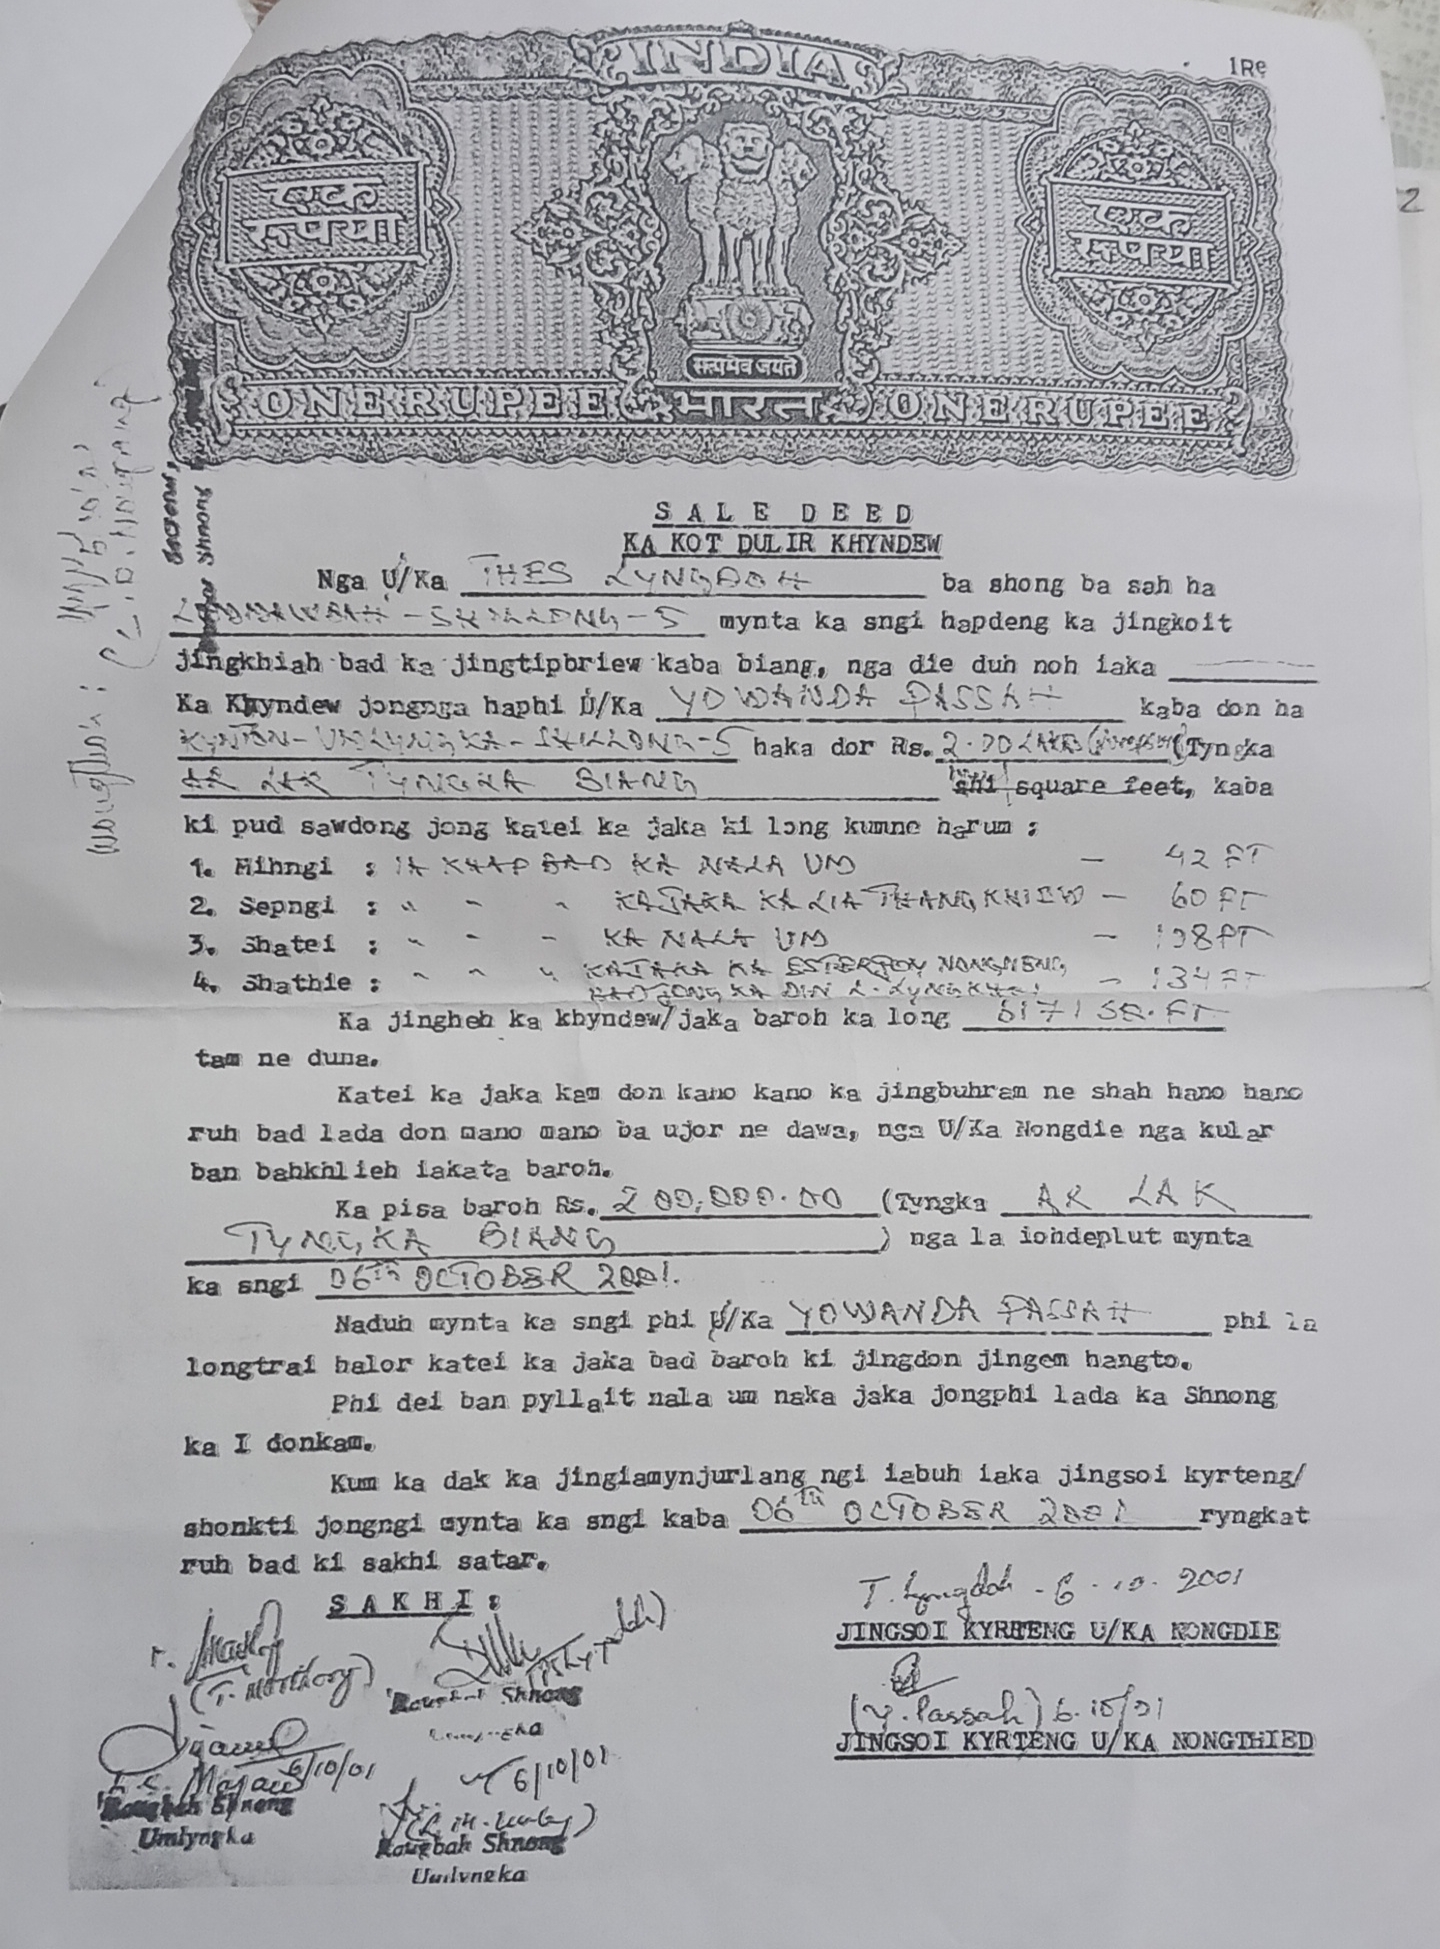 INDIA
1Re
एक
रूपया
एक
रूपया
सत्यमेव जयते
ONE RUPEE भारत ONE RUPEE
2
SALE DEED
KA KOT DULIR KHYNDEW
Nga U/Ka THES LYNGDOH ba shong ba sah ha
SHILLONG-5 mynta ka sngi hapdeng ka jingkoit
jingkhiah bad ka jingtipbriew kaba biang, nga die duh noh iaka
Ka Khyndew jongnga haphi U/Ka YOWANDA PASSAH kaba don ha
KYNTON-UMLYNGKA-SHILLONG-5 haka dor Rs. 2.00 LAKHS (Tyngka
AR LAK TYNGKA BIANG shi square feet, kaba
ki pud sawdong jong katei ka jaka ki long kumne harum :
1. Mihngi : IA KHAP BAD KA NALA UM - 42 FT
2. Sepngi : " " " KA JAKA KA LIA THANGKHIEW - 60 FT
3. Shatei : " " " KA NALA UM - 108 FT
4. Shathie : " " " KA JAKA KA ESTERJOY NONGNENG - 134 FT
BAD JONG KA DIN L. LYNGKHOI
Ka jingheh ka khyndew/jaka baroh ka long 6171 SQ. FT
tam ne duna.
Katei ka jaka kam don kano kano ka jingbuhram ne shah hano hano
ruh bad lada don mano mano ba ujor ne dawa, nga U/Ka Nongdie nga kular
ban bahkhlieh iakata baroh.
Ka pisa baroh Rs. 200,000.00 (Tyngka AR LAK
TYNGKA BIANG ) nga la iohdeplut mynta
ka sngi 06th OCTOBER 2001.
Naduh mynta ka sngi phi U/Ka YOWANDA PASSAH phi la
longtrai halor katei ka jaka bad baroh ki jingdon jingem hangto.
Phi dei ban pyllait nala um naka jaka jongphi lada ka Shnong
ka I donkam.
Kum ka dak ka jingiamynjurlang ngi iabuh iaka jingsoi kyrteng/
shonkti jongngi mynta ka sngi kaba 06th OCTOBER 2001 ryngkat
ruh bad ki sakhi satar.
SAKHI :
T. Lyngdoh - 6.10.2001
JINGSOI KYRTENG U/KA NONGDIE
(Y. Passah) 6.10/01
JINGSOI KYRTENG U/KA NONGTHIED
(T. Marthong)
Rangbah Shnong
6/10/01
Rangbah Shnong
Umlyngka
6/10/01
Rangbah Shnong
Umlyngka